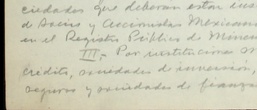 ciedades que deberán estar ins
de Socios y Accionistas Mexicano
en el Registro Público de Miner
III.- Por instituciones
crédito, sociedades de inversión,
seguros y sociedades de fianza